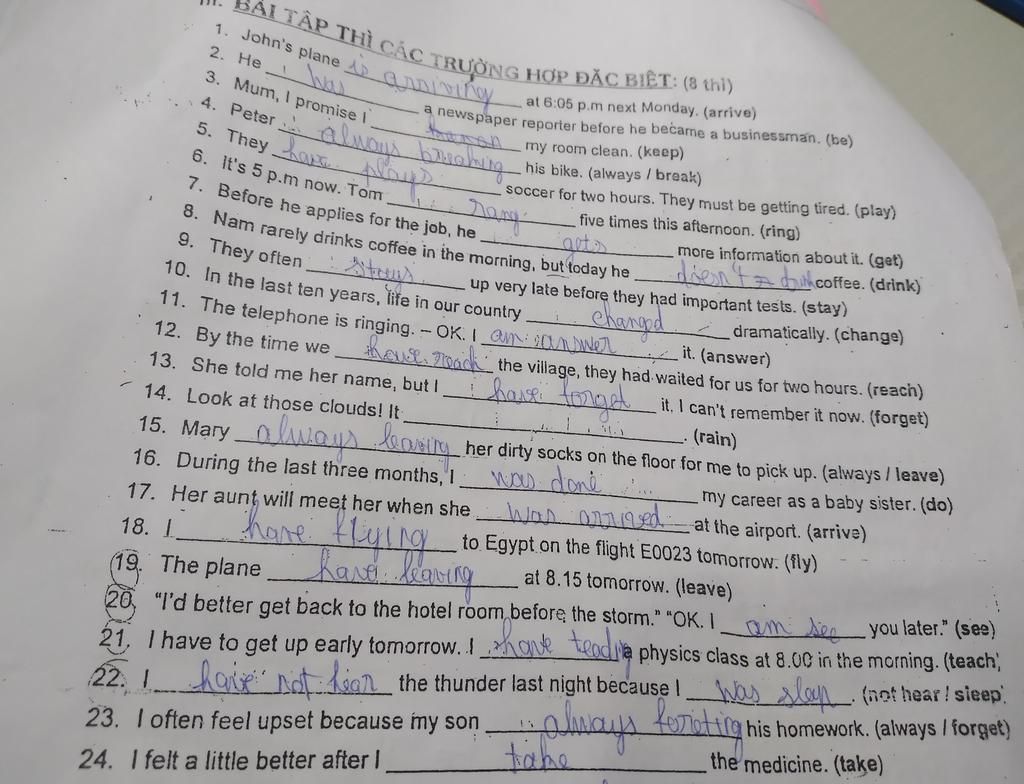 III. BÀI TẬP THÌ CÁC TRƯỜNG HỢP ĐẶC BIỆT: (8 thì)
1. John's plane is arriving at 6:05 p.m next Monday. (arrive)
2. He was a newspaper reporter before he became a businessman. (be)
3. Mum, I promise I my room clean. (keep)
4. Peter always breaking his bike. (always / break)
5. They have plays soccer for two hours. They must be getting tired. (play)
6. It's 5 p.m now. Tom rang five times this afternoon. (ring)
7. Before he applies for the job, he gets more information about it. (get)
8. Nam rarely drinks coffee in the morning, but today he doesn't drink coffee. (drink)
9. They often stays up very late before they had important tests. (stay)
10. In the last ten years, life in our country changed dramatically. (change)
11. The telephone is ringing. – OK. I am answer it. (answer)
12. By the time we have reach the village, they had waited for us for two hours. (reach)
13. She told me her name, but I have forget it. I can't remember it now. (forget)
14. Look at those clouds! It . (rain)
15. Mary always leaving her dirty socks on the floor for me to pick up. (always / leave)
16. During the last three months, I was done my career as a baby sister. (do)
17. Her aunt will meet her when she was arrived at the airport. (arrive)
18. I have flying to Egypt on the flight E0023 tomorrow. (fly)
19. The plane have leaving at 8.15 tomorrow. (leave)
20. "I'd better get back to the hotel room before the storm." "OK. I am see you later." (see)
21. I have to get up early tomorrow. I have a physics class at 8.00 in the morning. (teach)
22. I have not hear the thunder last night because I was slep. (not hear / sleep)
23. I often feel upset because my son always his homework. (always / forget)
24. I felt a little better after I take the medicine. (take)